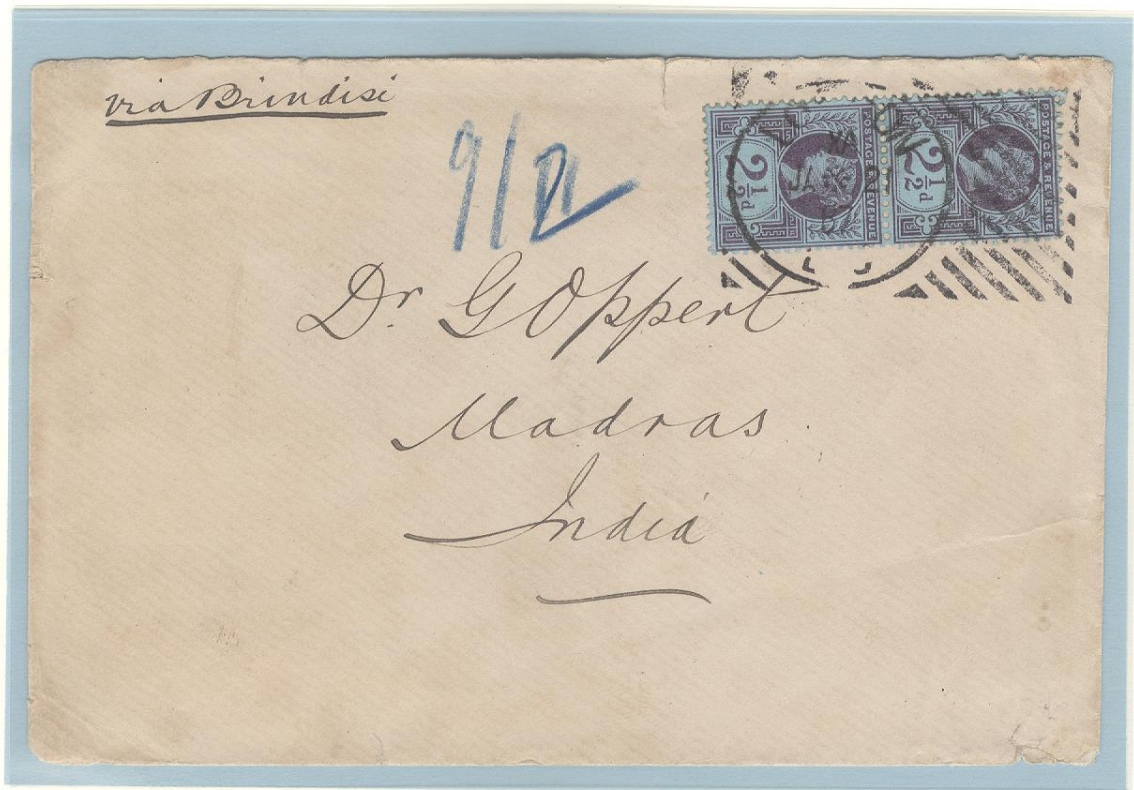 via Brindisi
9/
POSTAGE & REVENUE
2½d
POSTAGE & REVENUE
2½d
Dr. G Oppert
Madras
India